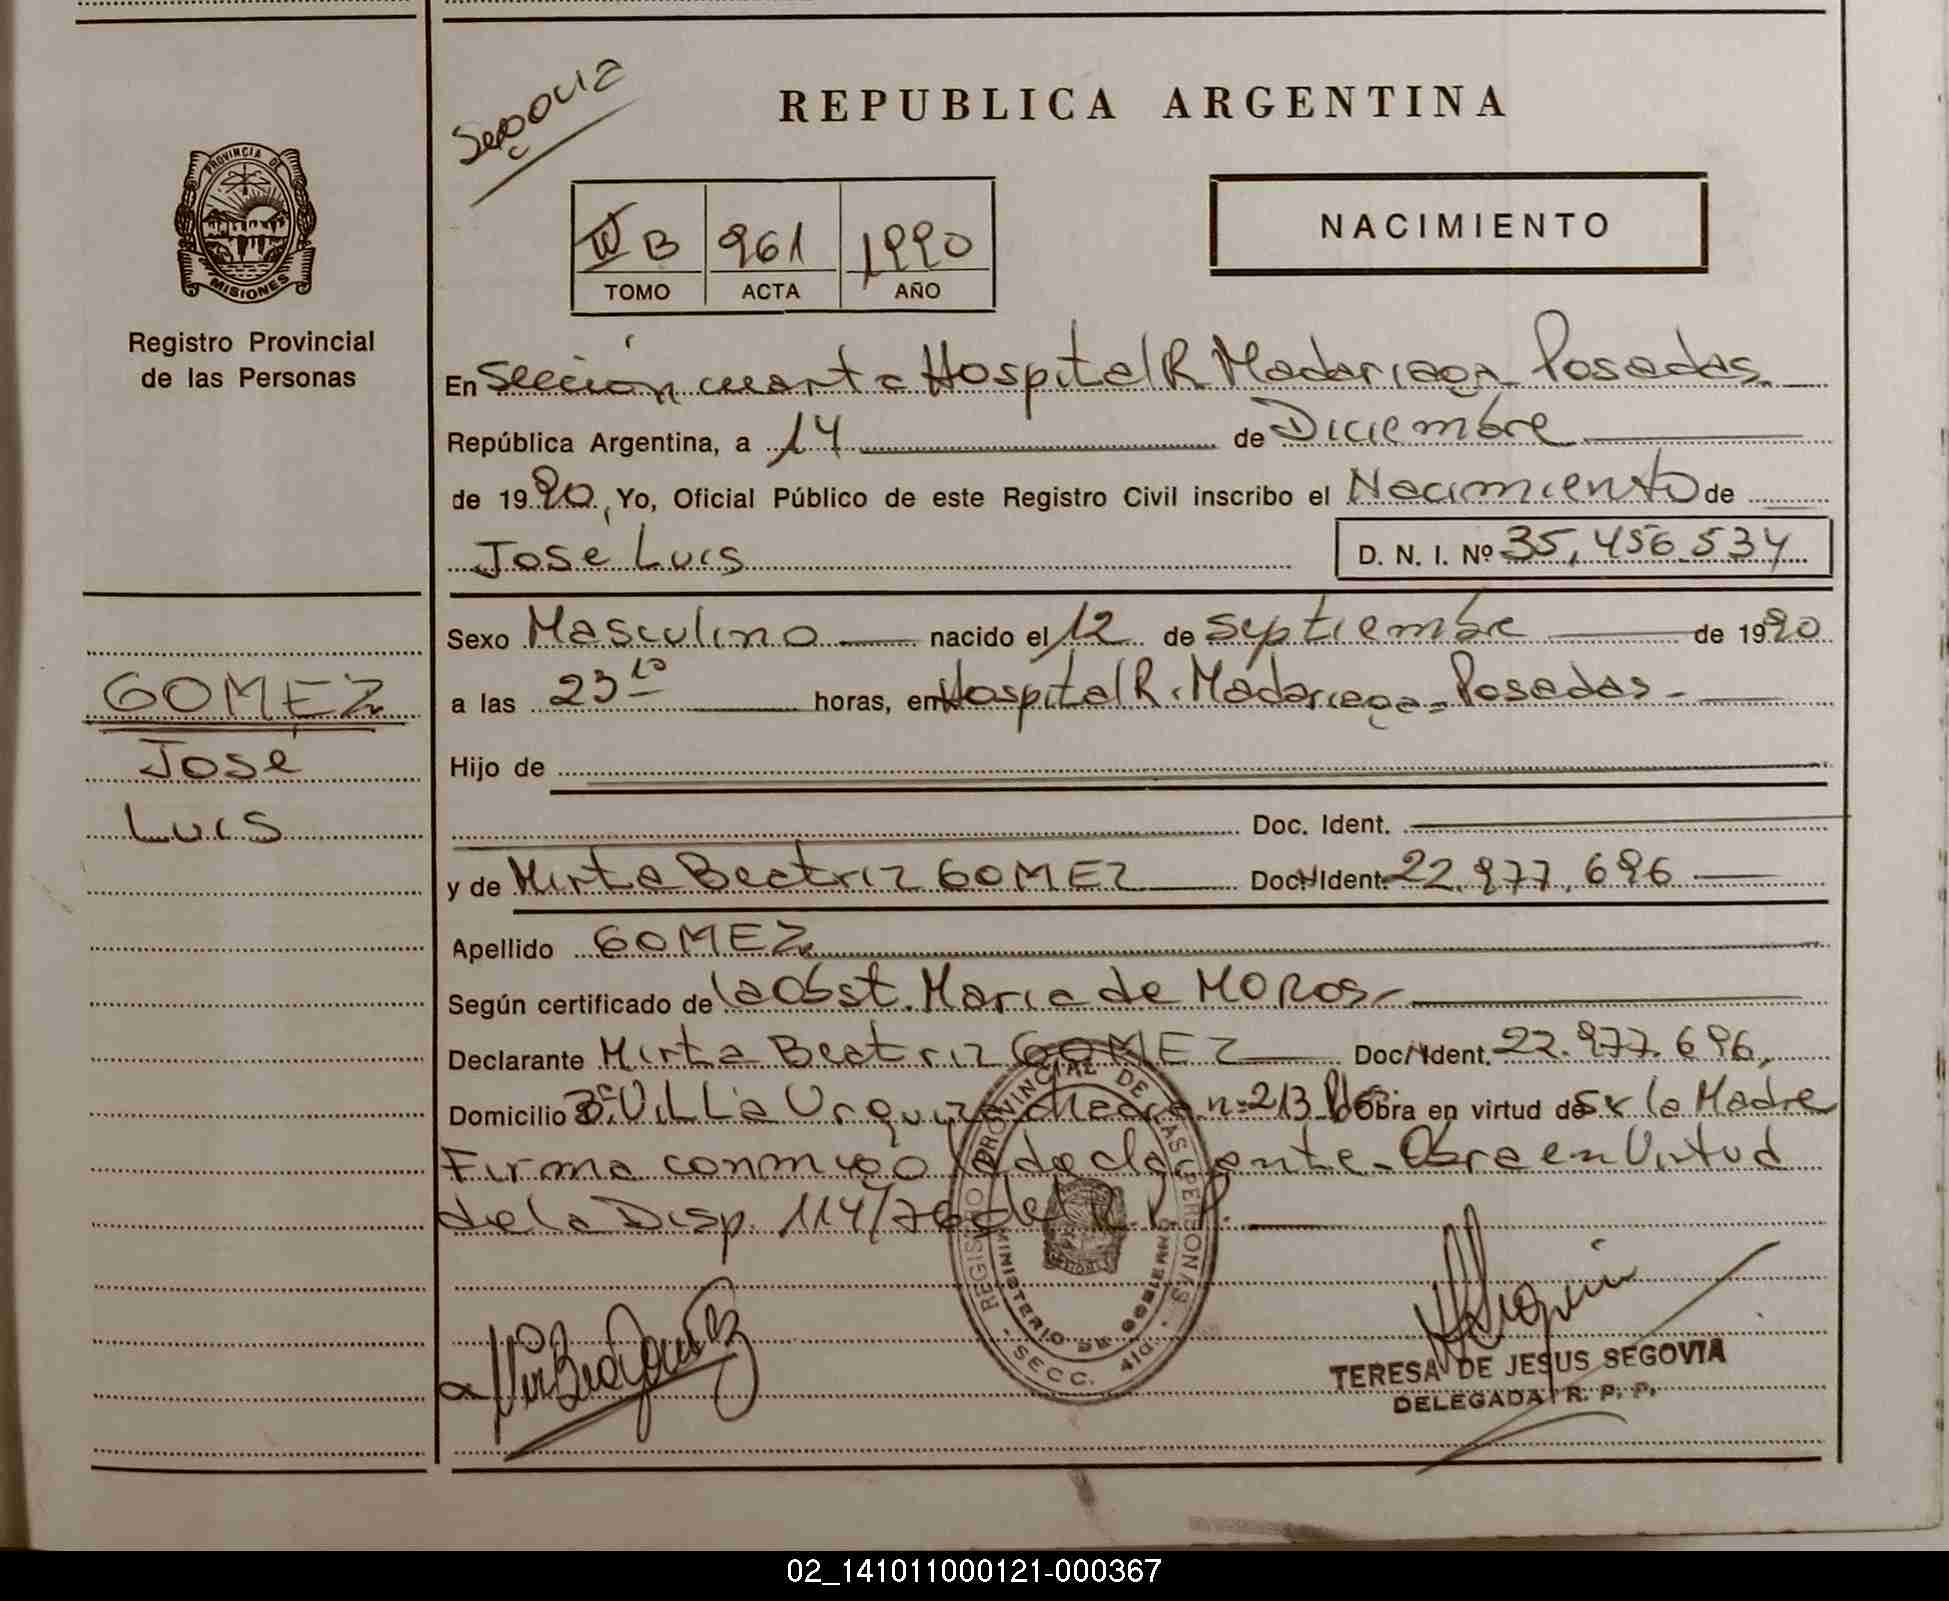 Segovia
REPUBLICA ARGENTINA
PROVINCIA DE
MISIONES
Registro Provincial
de las Personas
IV B 961 1990
TOMO ACTA AÑO
NACIMIENTO
En Sección cuarta Hospital R Madariaga Posadas
República Argentina, a 14 de Diciembre
de 1990, Yo, Oficial Público de este Registro Civil inscribo el Nacimiento de
José Luis D. N. I. Nº 35,456.534
Sexo Masculino nacido el 12 de Septiembre de 1990
a las 23 10 horas, en Hospital R. Madariaga - Posadas -
GOMEZ
José
Luis
Hijo de
Doc. Ident.
y de Mirta Beatriz GOMEZ Doc. Ident. 22.977.696
Apellido GOMEZ
Según certificado de la Obst. Maria de MOROS
Declarante Mirta Beatriz GOMEZ Doc. Ident. 22.977.696,
Domicilio Bº Villa Urquiza n=213 Obra en virtud de la Madre
Firma conmigo la declarante - Obra en Virtud
de la Disp. 114/76 del R. P. P.
REGISTRO PROVINCIAL DE LAS PERSONAS
MINISTERIO DE GOBIERNO
- SECC. 4ta. -
TERESA DE JESUS SEGOVIA
DELEGADA R. P. P.
02_141011000121-000367